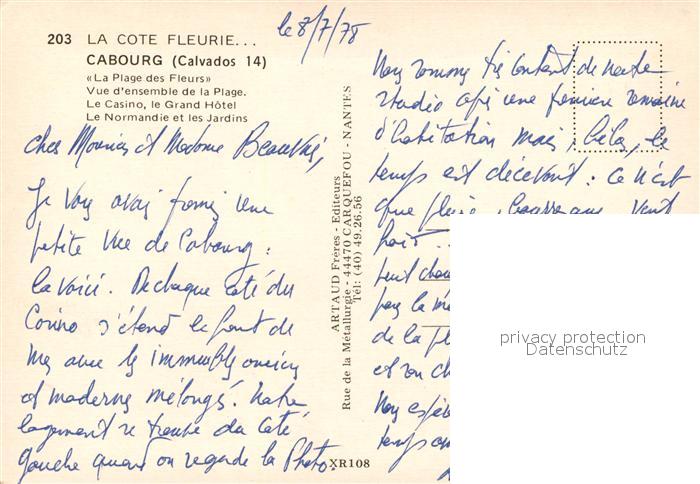 203 LA COTE FLEURIE...
CABOURG (Calvados 14)
«La Plage des Fleurs»
Vue d'ensemble de la Plage.
Le Casino, le Grand Hôtel
Le Normandie et les Jardins
le 8/7/78
cher Monsieur et Madame Beauvais,
Je vous avais promis une
petite vue de Cabourg :
la voici. De chaque coté du
Casino s'étend le front de
mer avec les immeubles anciens
et modernes mélangés. Notre
logement se trouve du coté
gauche quand on regarde la Photo.
ARTAUD Frères - Editeurs
Rue de la Métallurgie - 44470 CARQUEFOU - NANTES
Tél: (40) 49.26.56
XR108
Nous sommes très content de notre
studio après une première semaine
d'habitation mais, hélas, le
temps est décevant : ce n'est
que pluie, bourrasque, vent
froid..
tout
par la
de la
et on
Nous
temps
privacy protection
Datenschutz